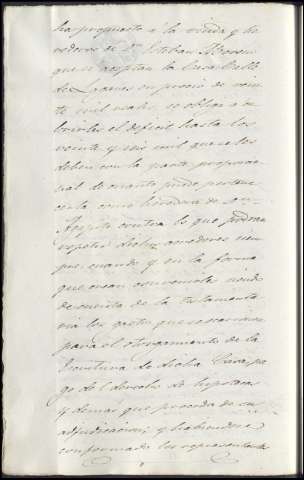 ha propuesto á la viuda y he
rederos de Dn Esteban
que si aceptan la Casa calle
de en precio de vein
te mil reales, se obliga á cu
brirles el deficit hasta los
veinte y mil que se les
deben con la parte proporcio
nal de cuanto pueda pertene
cerla como heredera de Dn
contra los que podran
repetir dichos acreedores siem
pre, cuando y en la forma
que crean conveniente siendo
de cuenta de la testamenta
ria los gastos que se ocasionen
para el otorgamiento de la
Escritura de dicha Casa pa
go del derecho de hipotecas
y demas que proceda de su
adjudicacion; y habiendose
conformado los representante